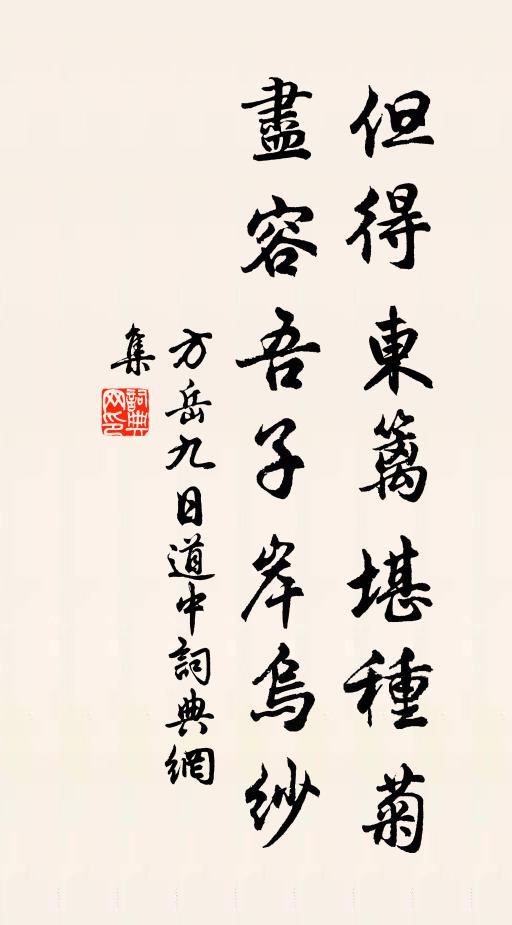 但得東籬堪種菊
盡容吾子岸烏紗
方岳九日道中詞典網
集
詞典网印